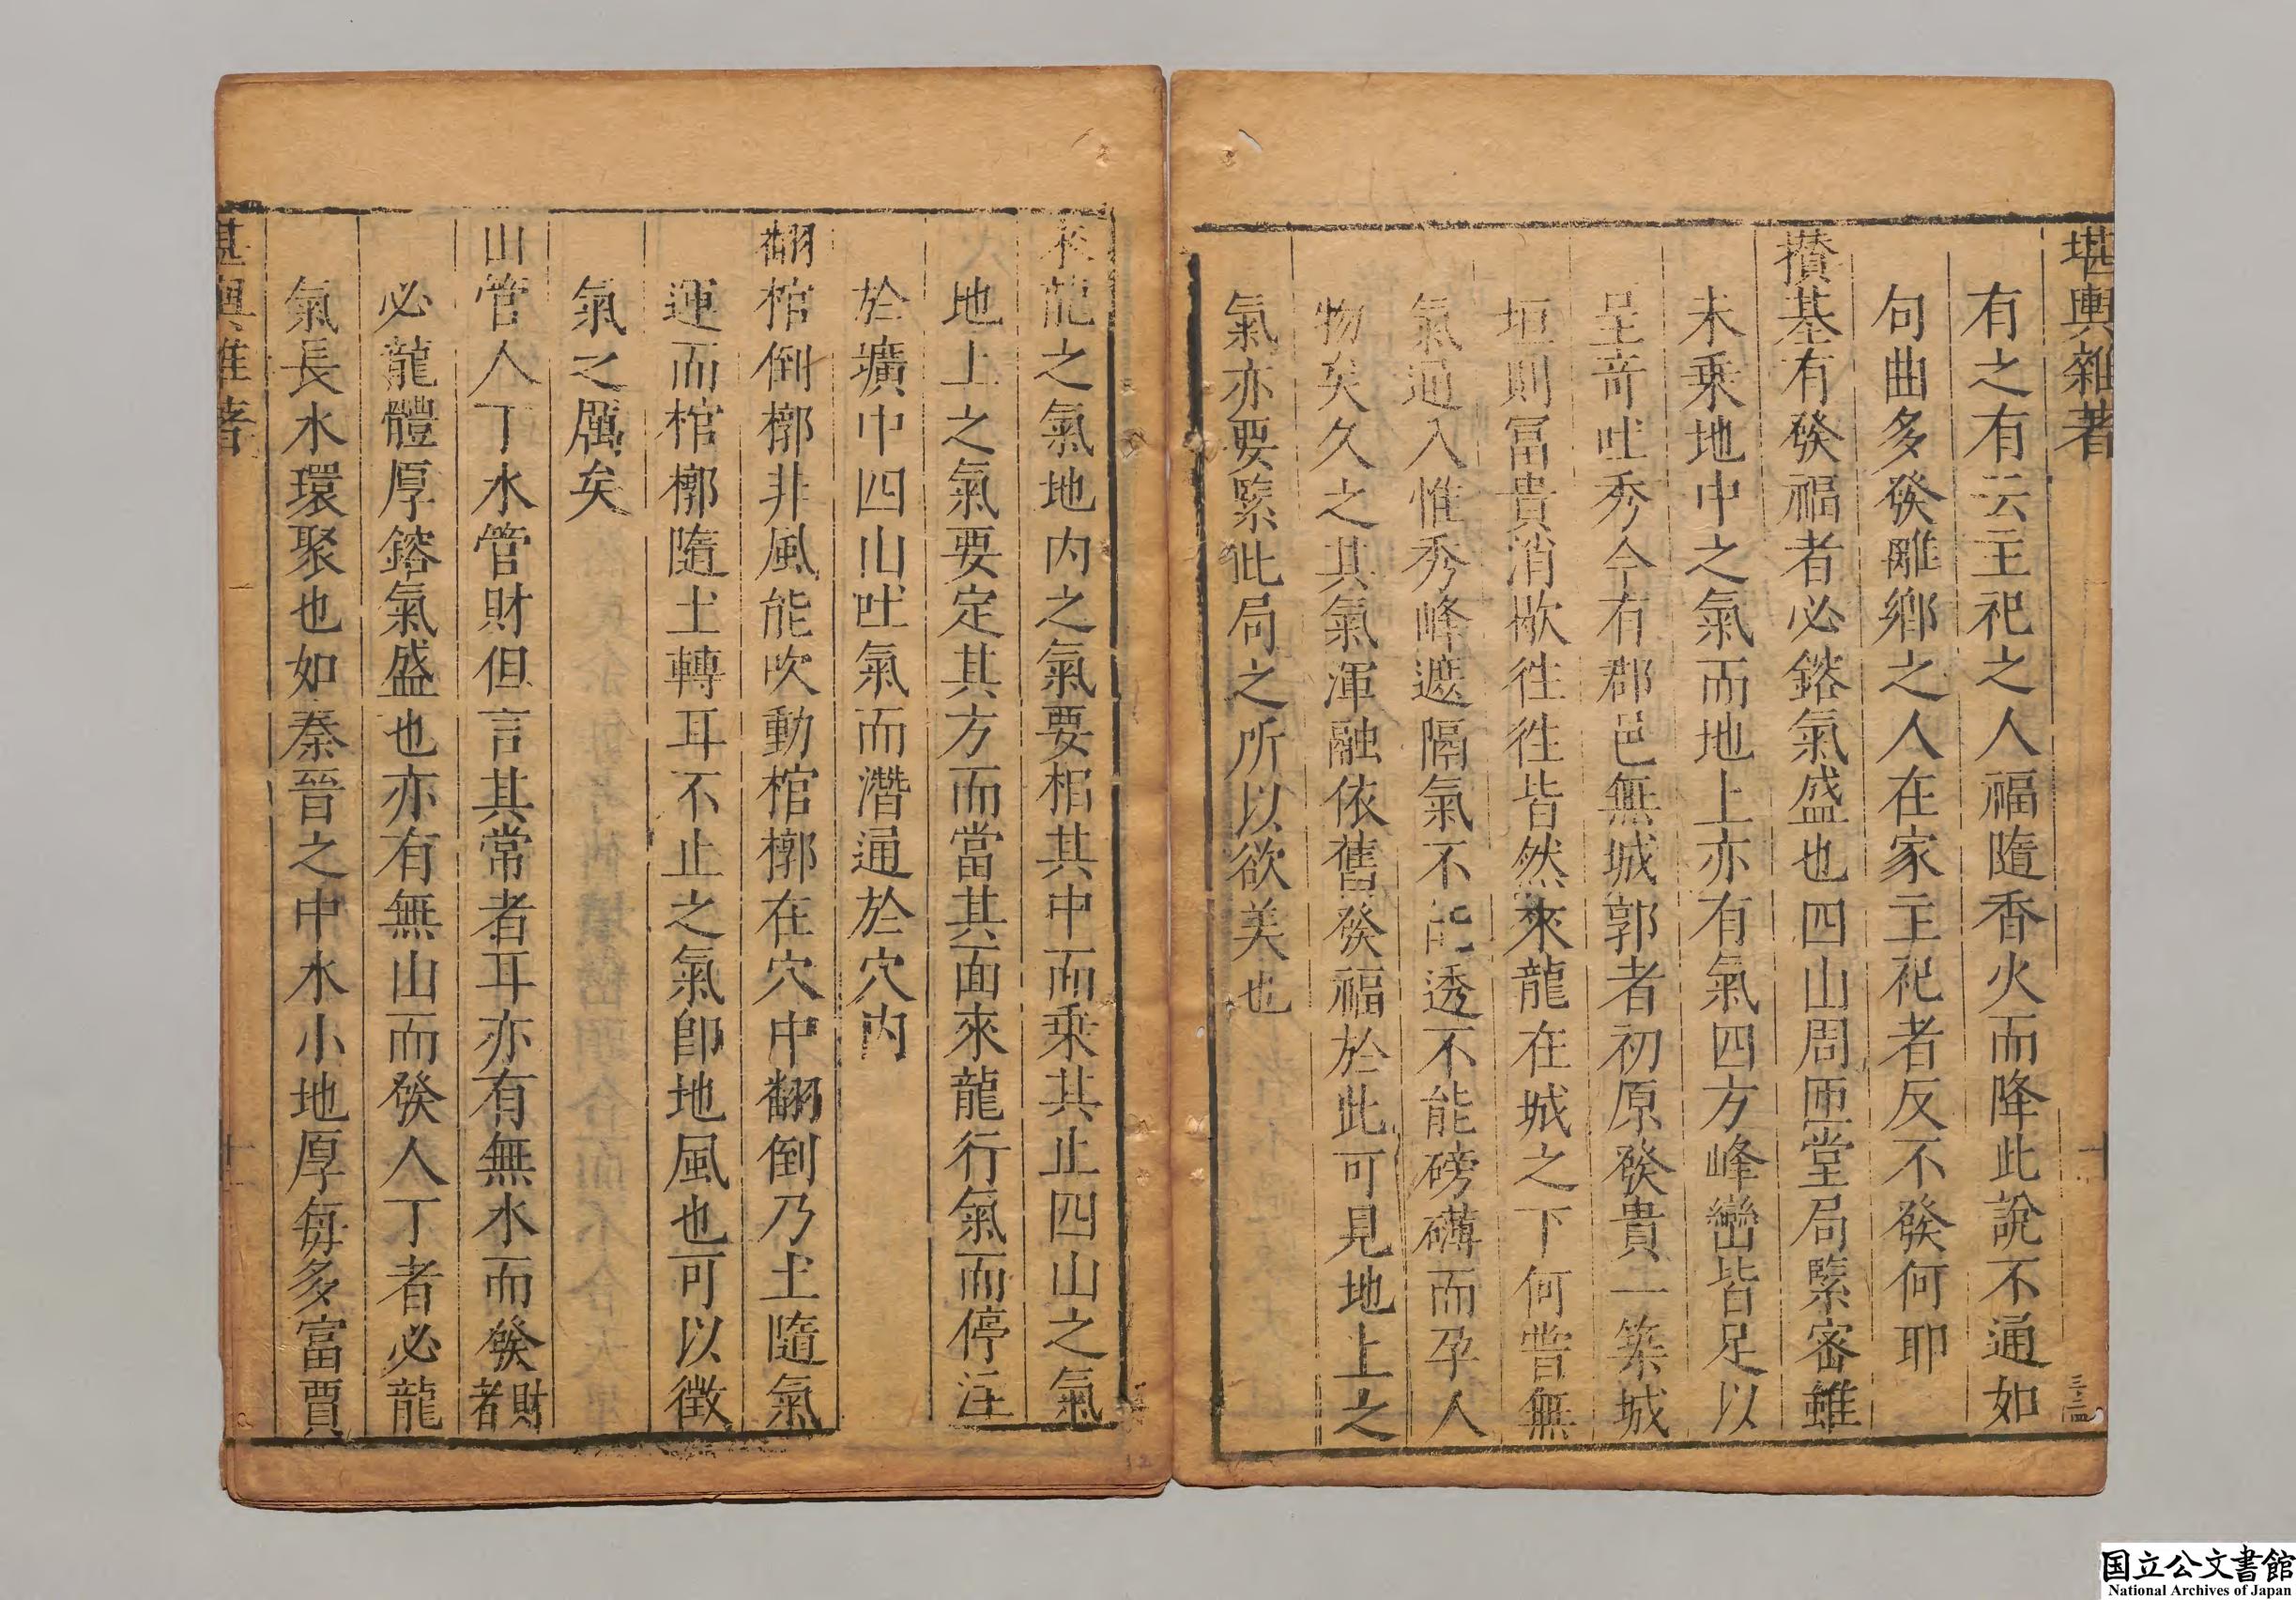 堪輿雜著
十
有之有云主祀之人福隨香火而降此說不通如
句曲多發離鄉之人在家主祀者反不發何耶
攢基有發福者必鎔氣盛也四山周匝堂局緊密雖
未乗地中之氣而地上亦有氣四方峰巒皆足以
呈竒吐秀今有郡邑無城郭者初原發貴一築城
垣則冨貴消歇徃徃皆然來龍在城之下何甞無
氣通入惟秀峰遮隔氣不能透不能磅礡而孕人
物矣久之其氣渾融依舊發福於此可見地上之
氣亦要緊此局之所以欲美也
來龍之氣地内之氣要棺其中而乗其止四山之氣
地上之氣要定其方而當其面來龍行氣而停注
於壙中四山吐氣而潛通於穴内
翻棺倒槨非風能吹動棺槨在穴中翻倒乃土隨氣
運而棺槨隨土轉耳不止之氣即地風也可以徴
氣之厲矣
山管人丁水管財但言其常者耳亦有無水而發財者
必龍體厚鎔氣盛也亦有無山而發人丁者必龍
氣長水環聚也如秦晉之中水小地厚每多富賈
堪輿雜著
十一
国立公文書館
National Archives of Japan